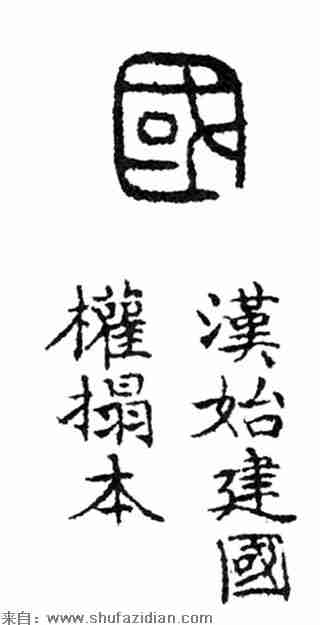 國
漢始建國
權搨本
来自：www.shufazidian.com